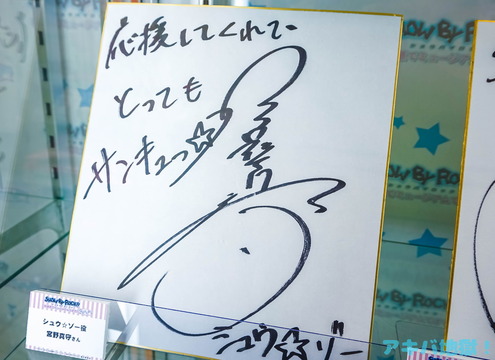 応援してくれて、
とっても
サンキューっ☆
シュウ☆ゾー
SHOW BY ROCK!!
シュウ☆ゾー役
宮野真守さん
SHOW BY ROCK
アキバ地獄!